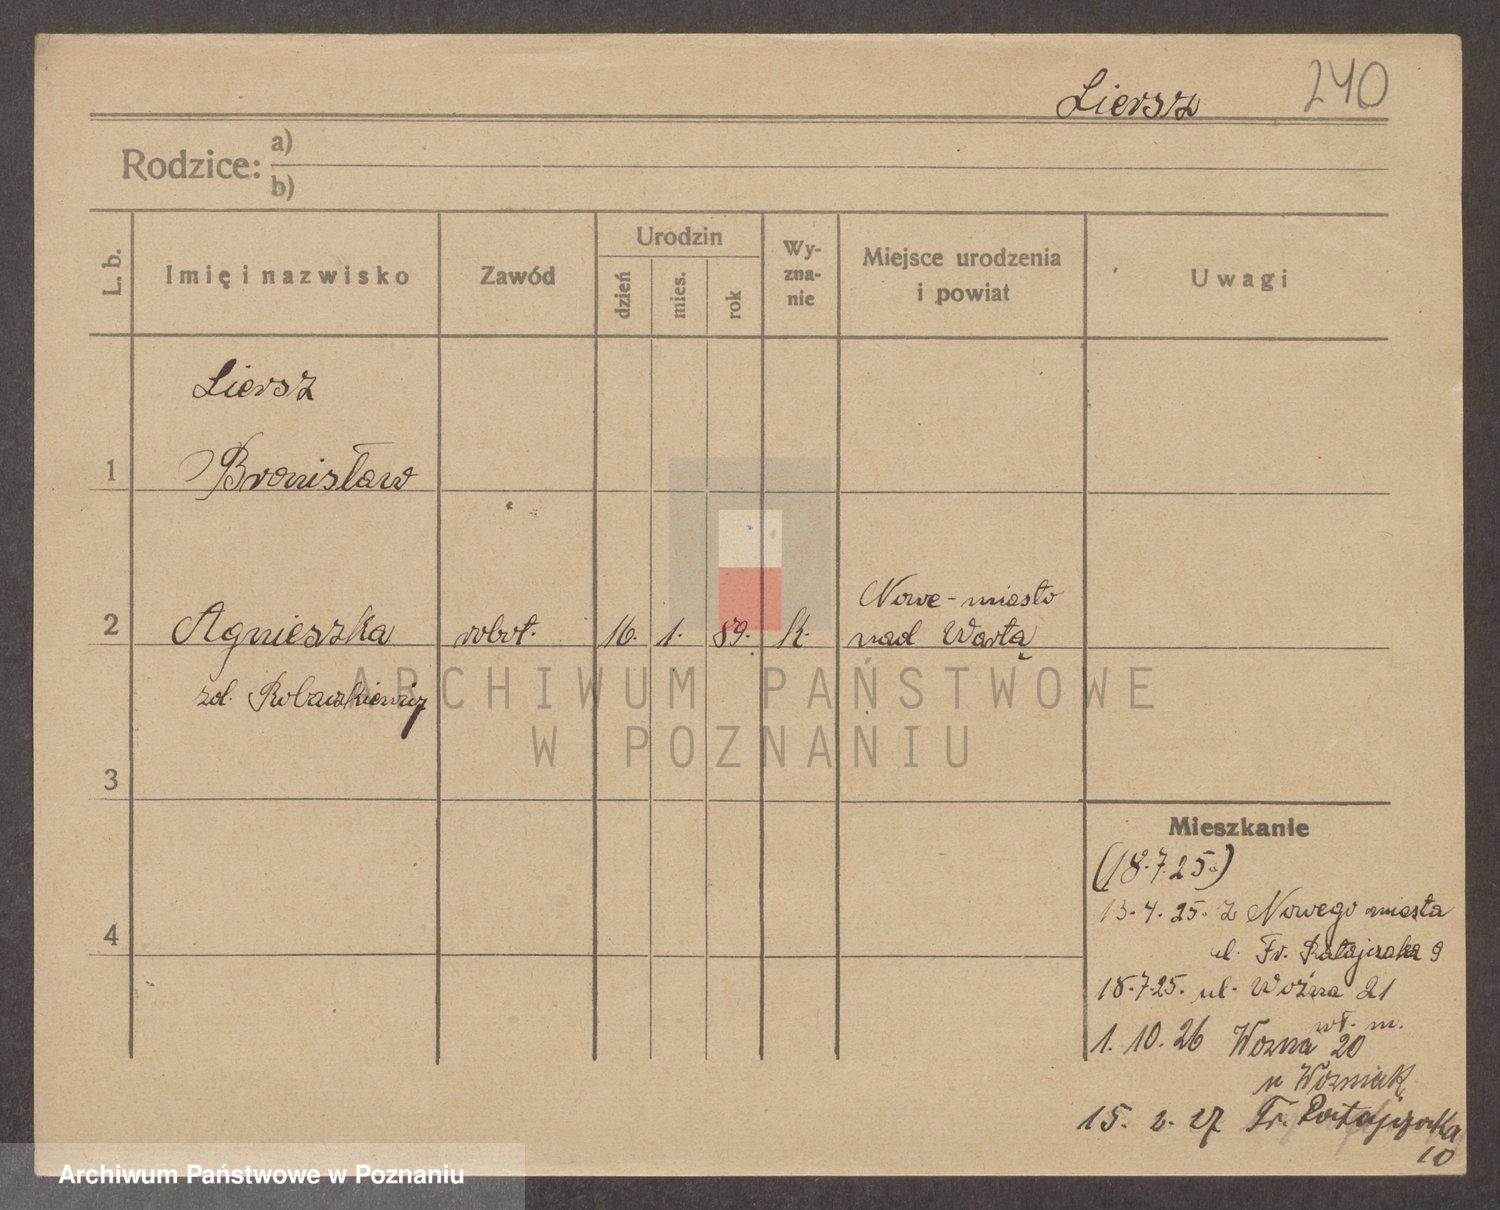 Liersz 240
Rodzice: a)
b)
L. b.
Imię i nazwisko
Zawód
Urodzin
dzień
mies.
rok
Wy-
zna-
nie
Miejsce urodzenia
i powiat
Uwagi
Liersz
1 Bronisław
2 Agnieszka robot. 16. 1. 89. k. Nowe-miasto
nad Wartą
zd. Robaszkiewicz
3
4
Mieszkanie
(18.7.25.)
13.4.25. z Nowego miasta
ul. Fr. Ratajczaka 9
18.7.25. ul. Woźna 21
wł. m.
1.10.26 Wozna 20
u Wozniak
15.2.27 Fr. Ratajczaka
10
ARCHIWUM PAŃSTWOWE
W POZNANIU
Archiwum Państwowe w Poznaniu